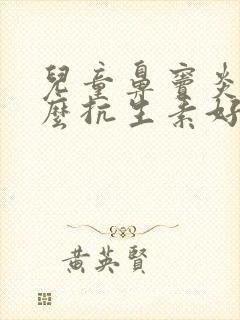 兒童鼻竇炎
麼抗生素好
黃英賢